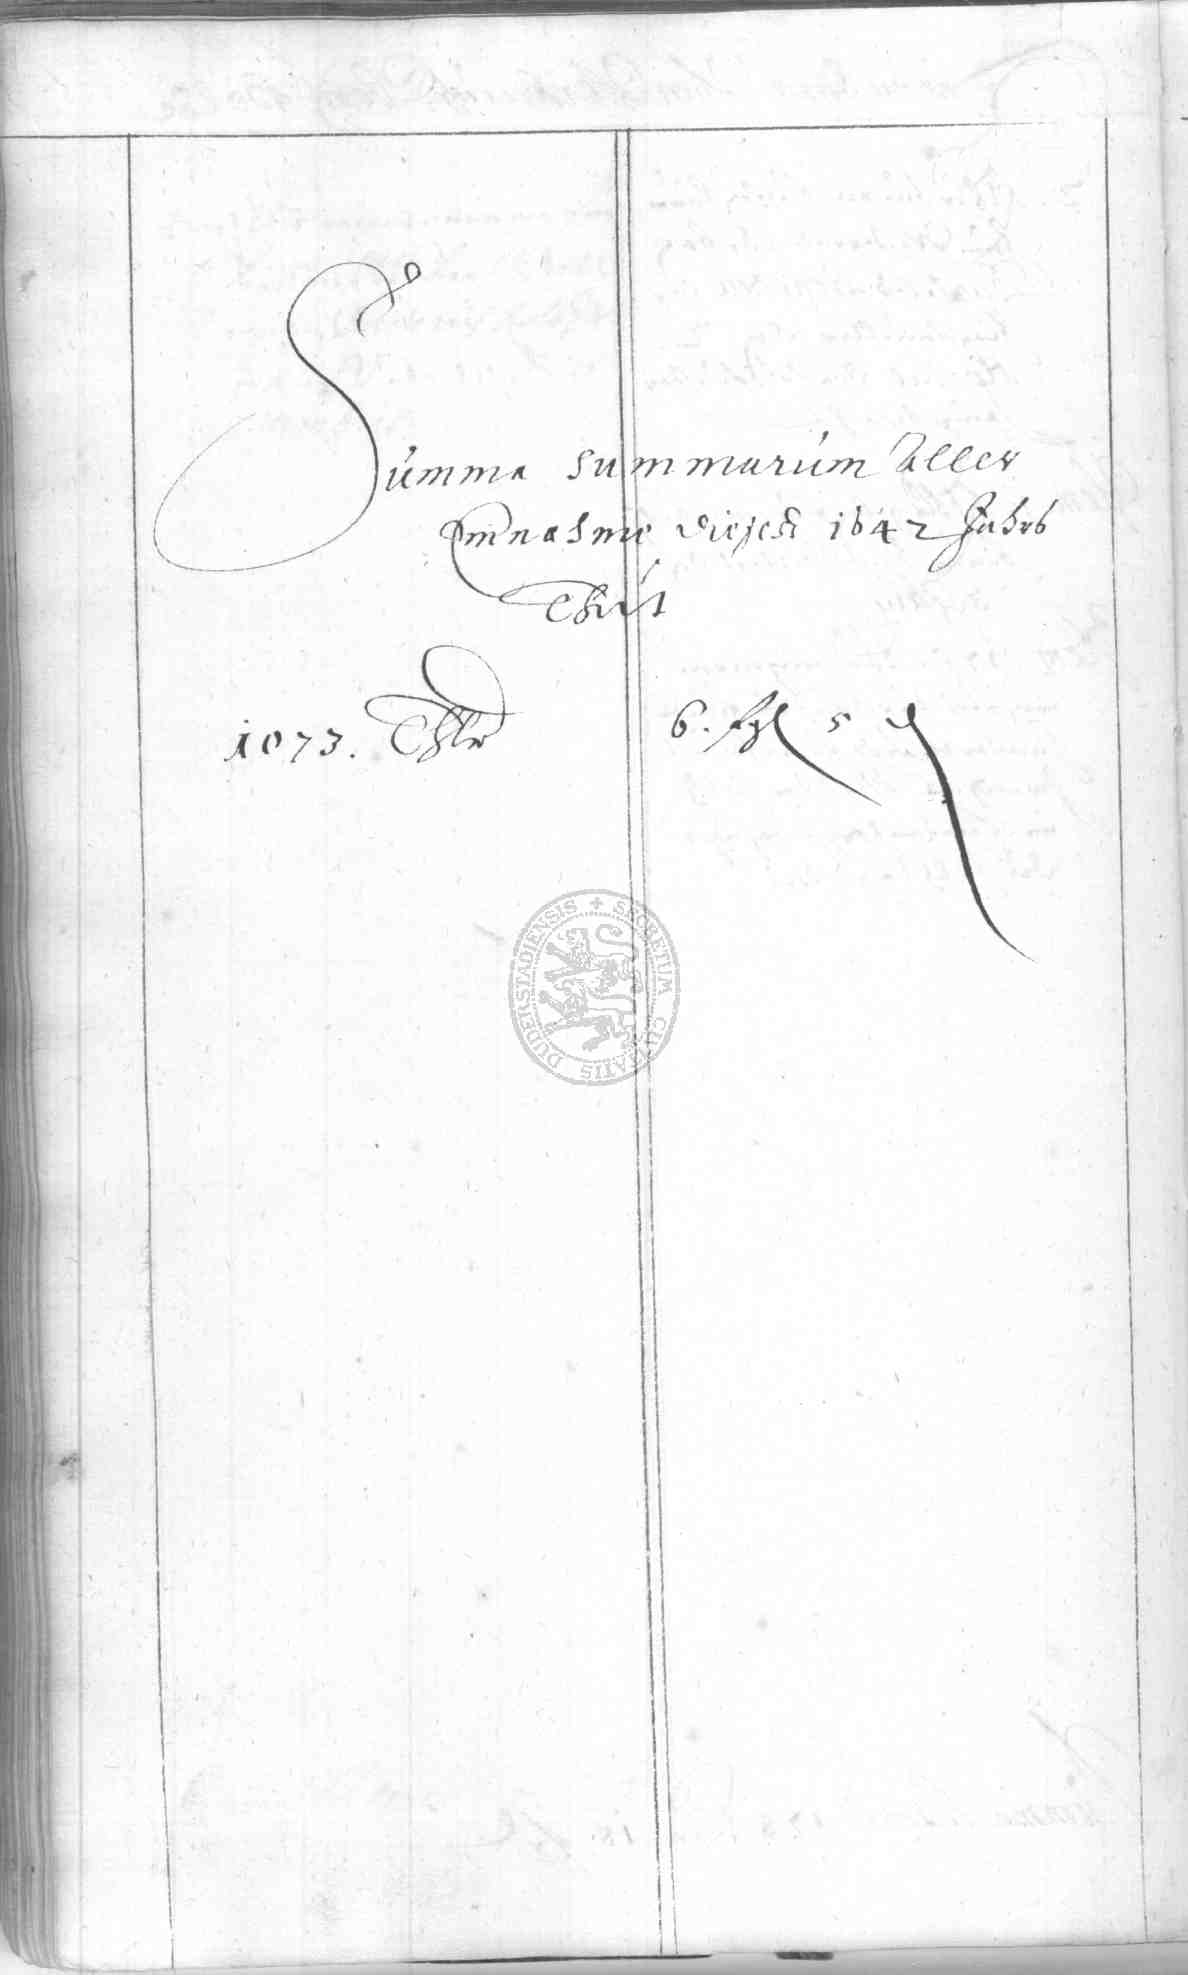 Summa Summarum Aller
Einnahme dieses 1642 Jahrs
Thut
1073. Thlr 6. ßgl 5 ₰
DUDERSTADIENSIS + SECRETUM CIVITATIS